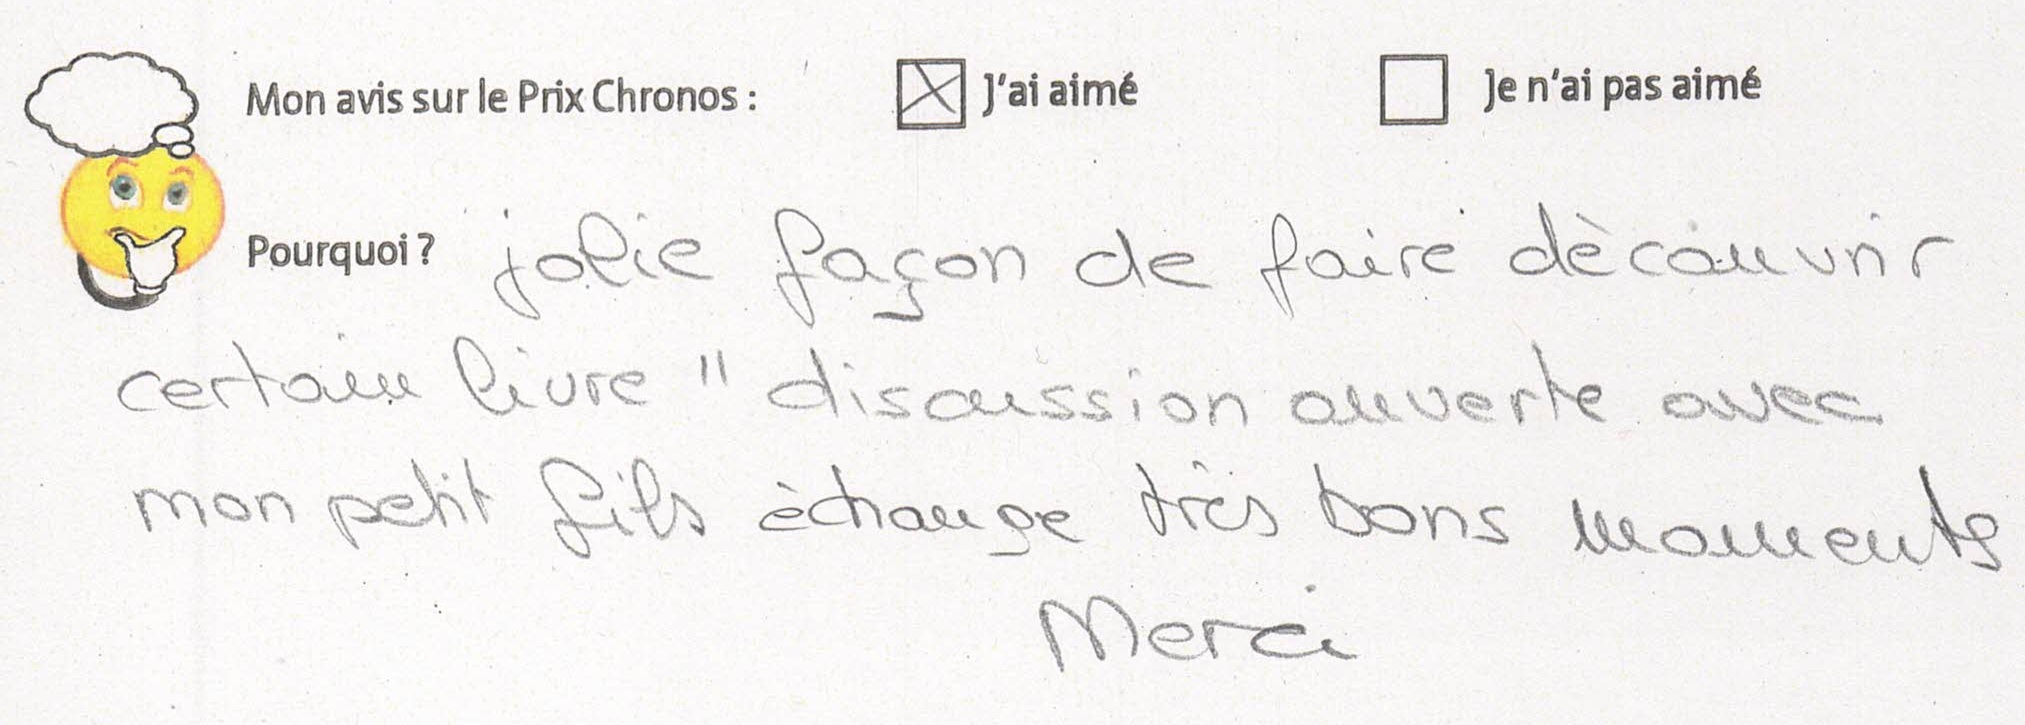 Mon avis sur le Prix Chronos : ☒ J'ai aimé ☐ Je n'ai pas aimé
Pourquoi ? jolie façon de faire dècouvrir
certain livre " discussion ouverte avec
mon petit fils èchange très bons moments
Merci